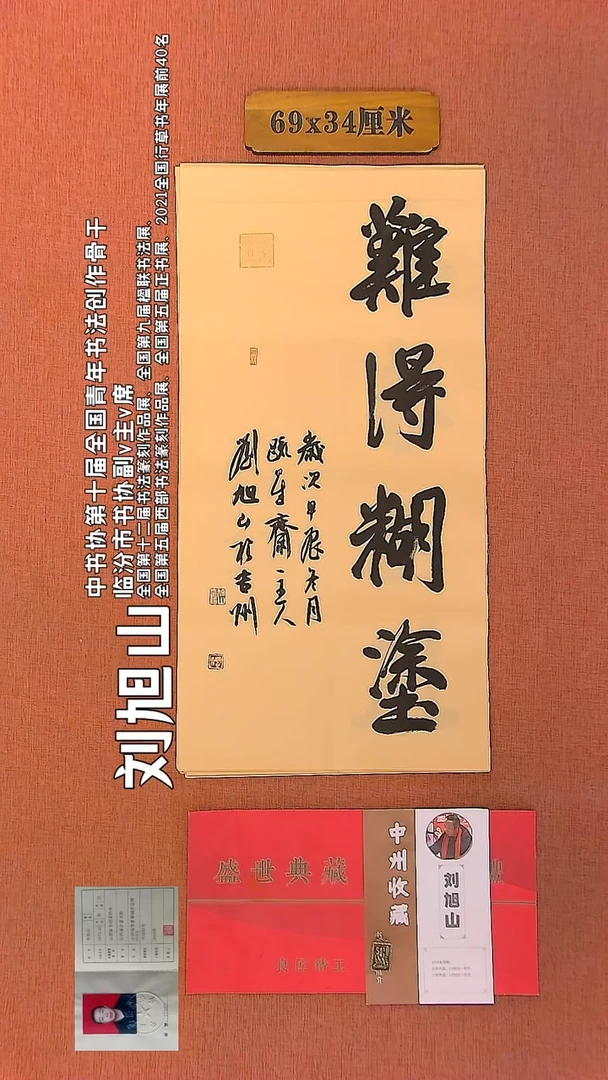 69x34厘米
難得糊塗
歲次甲辰冬月
齋主人
劉旭山於吉州
中书协第十届全国青年书法创作骨干
临汾市书协副v主v席
全国第十二届书法篆刻作品展、全国第九届楹联书法展、
全国第五届西部书法篆刻作品展、全国第五届正书展、2021全国行草书年展前40名
刘旭山
盛世典藏
中州收藏
刘旭山